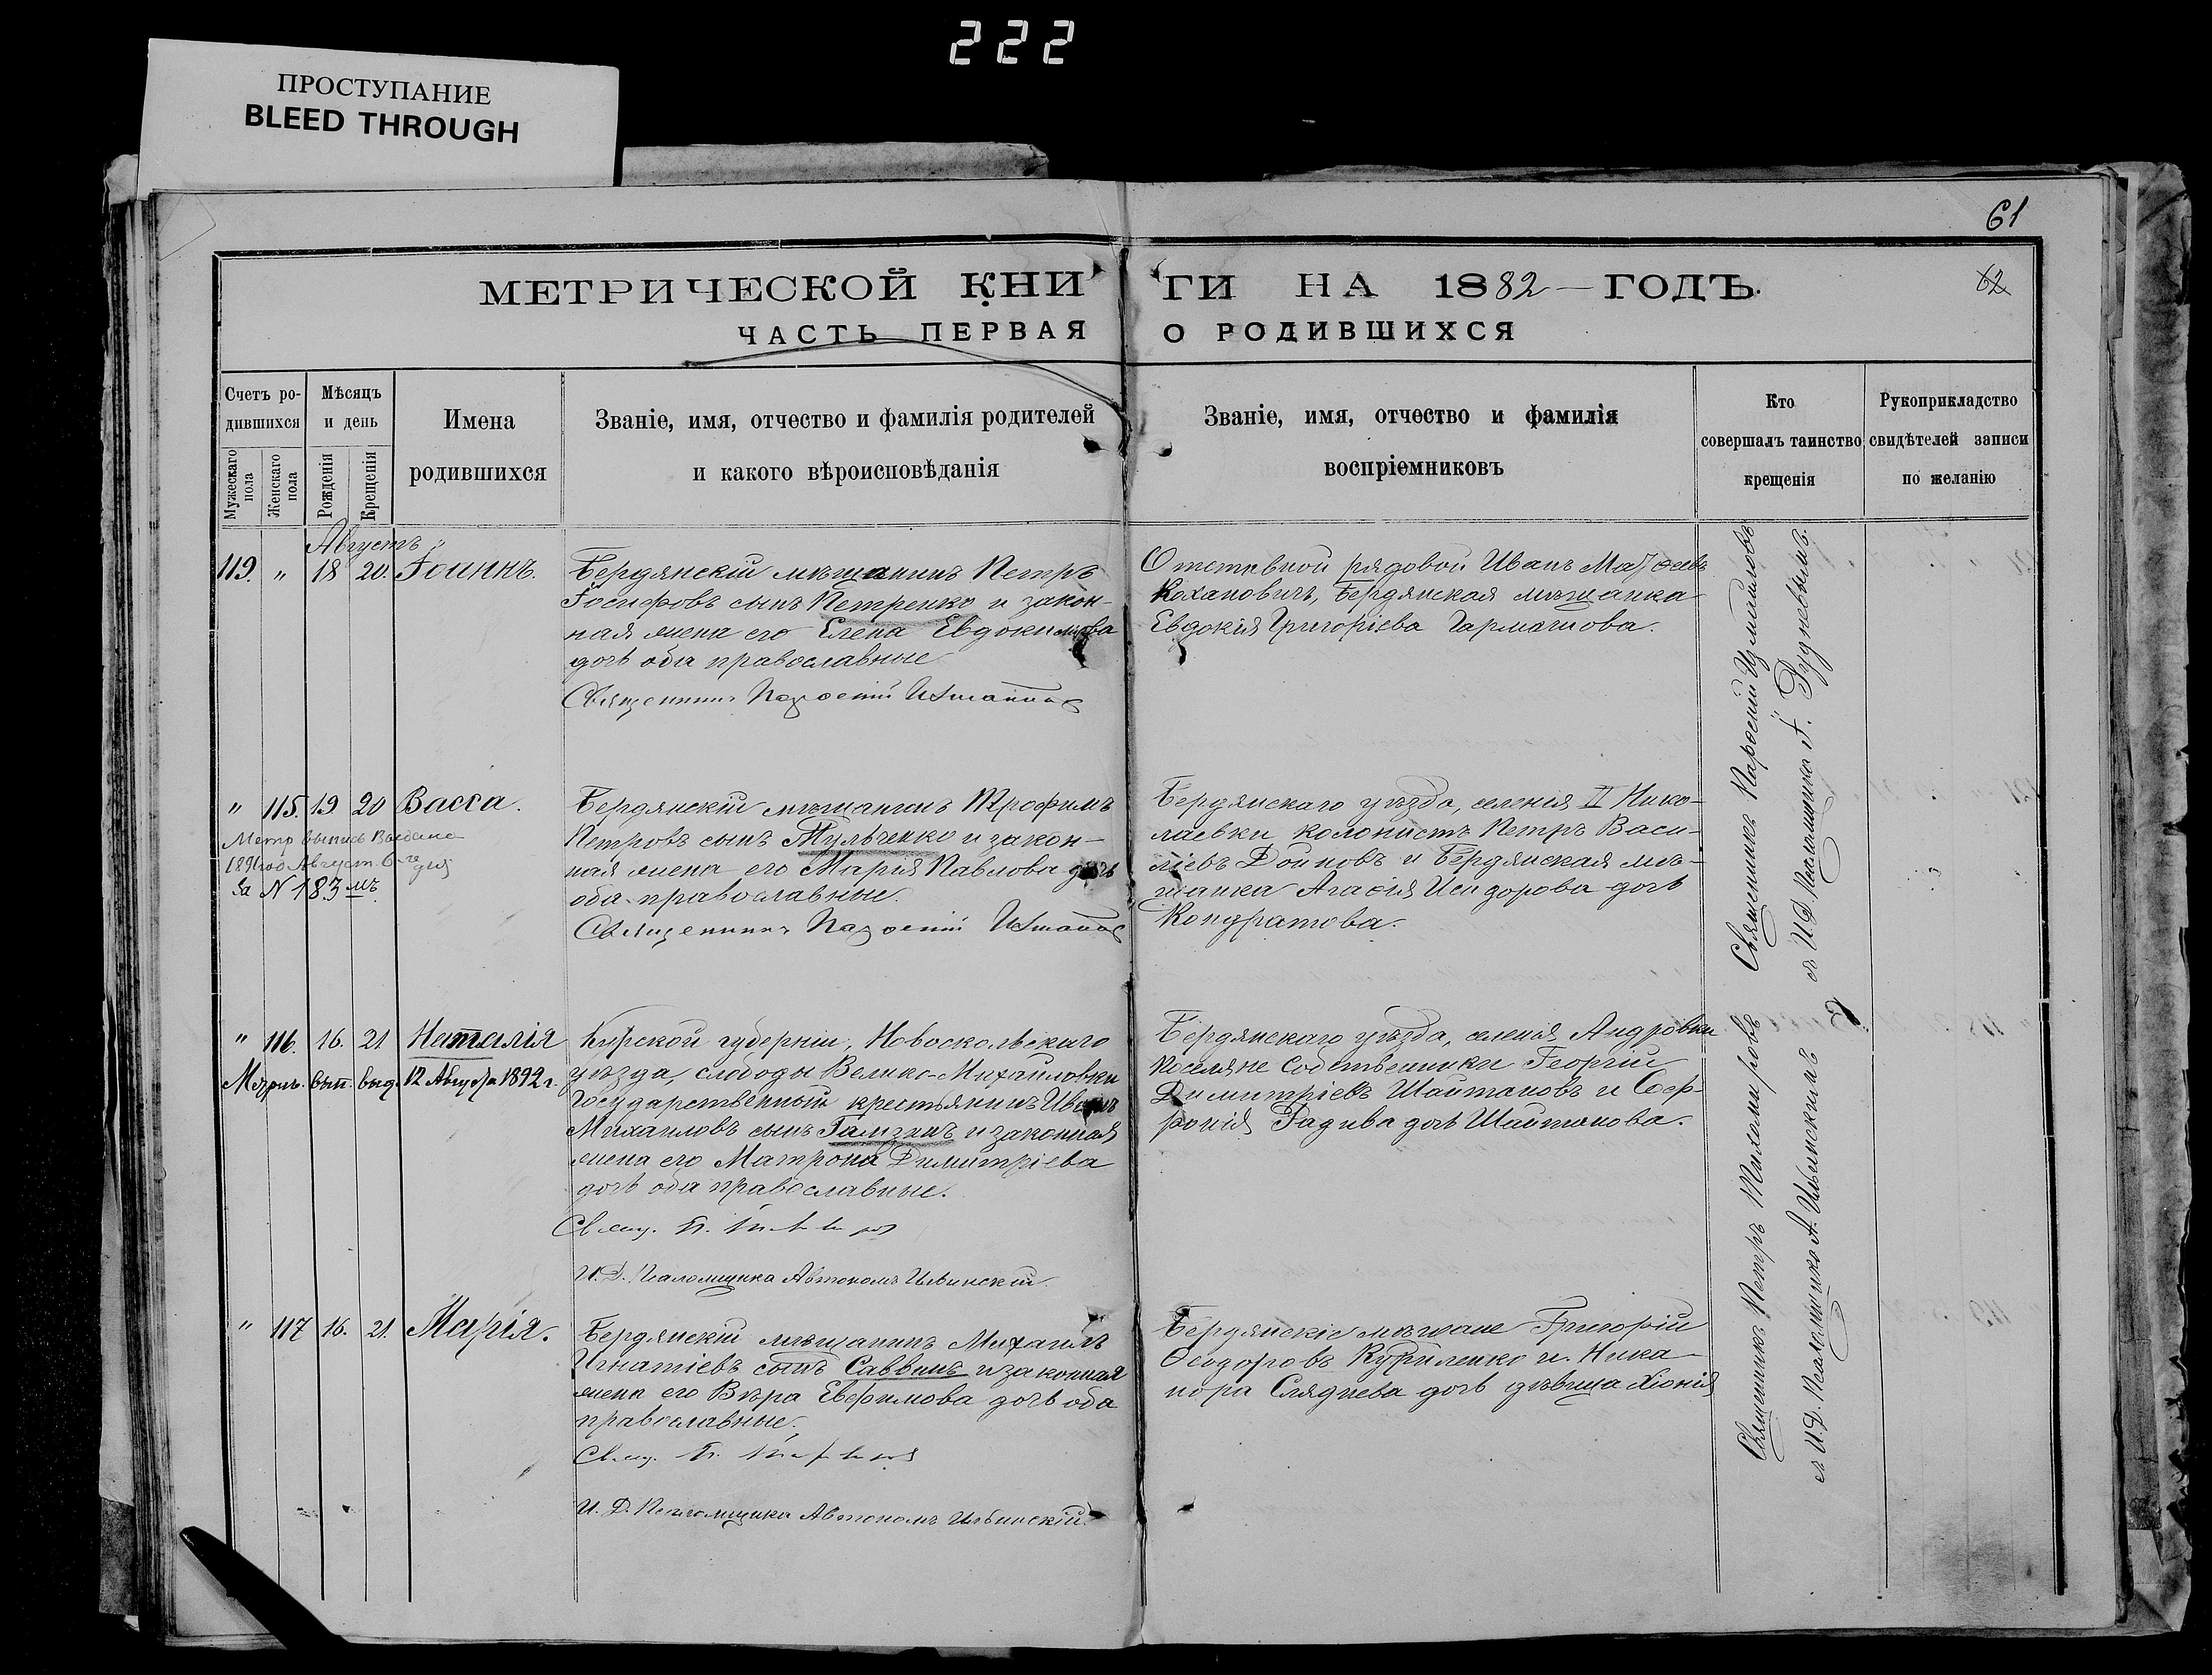 222
ПРОСТУПАНИЕ
BLEED THROUGH
61
62
МЕТРИЧЕСКОЙ КНИГИ НА 1882 ГОДЪ.
ЧАСТЬ ПЕРВАЯ О РОДИВШИХСЯ
Счетъ ро-
дившихся
Мужескаго
пола
Женскаго
пола
Мѣсяцъ
и день
Рожденія
Крещенія
Имена
родившихся
Званіе, имя, отчество и фамилія родителей
и какого вѣроисповѣданія
Званіе, имя, отчество и фамилія
воспріемниковъ
Кто
совершалъ таинство
крещенія
Рукоприкладство
свидѣтелей записи
по желанію
Августъ
119. " 18 20. Іоаннъ.
Бердянскій мѣщанинъ Петръ
Іосифовъ сынъ Петренко и закон-
ная жена его Елена Евдокимова
дочь оба православные
Священникъ
Отставной рядовой Иванъ Матѳеевъ
Кохановичъ, Бердянская мѣщанка
Евдокія Григоріева Гармашова.
" 115. 19 20 Васса.
Метр выпись Выдана
1891 год Август. 6-го дня
За N 183 мъ.
Бердянскій мѣщанинъ Трофимъ
Петровъ сынъ Тульченко и закон-
ная жена его Марія Павлова дочь
оба православные.
Священникъ
Бердянскаго уѣзда, селенія II Нико-
лаевки колонистъ Петръ Васи-
ліевъ Дойновъ и Бердянская мѣ-
щанка Агафія Исидорова дочь
Кондратова.
" 116. 16. 21. Наталія
Метрич. вып. выд. 12 Августа 1892 г.
Курской губерніи, Новооскольскаго
уѣзда, слободы Велико-Михайловки
Государственный крестьянинъ Иванъ
Михаиловъ сынъ и законная
жена его Матрона Димитріева
дочь оба православные.
Свящ. П.
И. Д. Псаломщика Автономъ Ильинскій.
Бердянскаго уѣзда, селенія Андровки
поселяне собственники Георгій
Димитріевъ Шайтановъ и Соф-
ронія дочь Шайтанова.
" 117 16. 21. Марія.
Бердянскій мѣщанинъ Михаилъ
Игнатіевъ сынъ Саввинъ и законная
жена его Вѣра Евфимова дочь оба
православные.
Свящ. П.
И. Д. Псаломщика Автономъ Ильинскій
Бердянскіе мѣщане Григорій
Ѳеодоровъ Куриленко и Ника-
нора дочь дѣвица Хіонія
Священникъ
съ И. Д. Псаломщика І. Рудневымъ.
Священникъ Петръ Тихомировъ
съ И. Д. Псаломщика А. Ильинскимъ